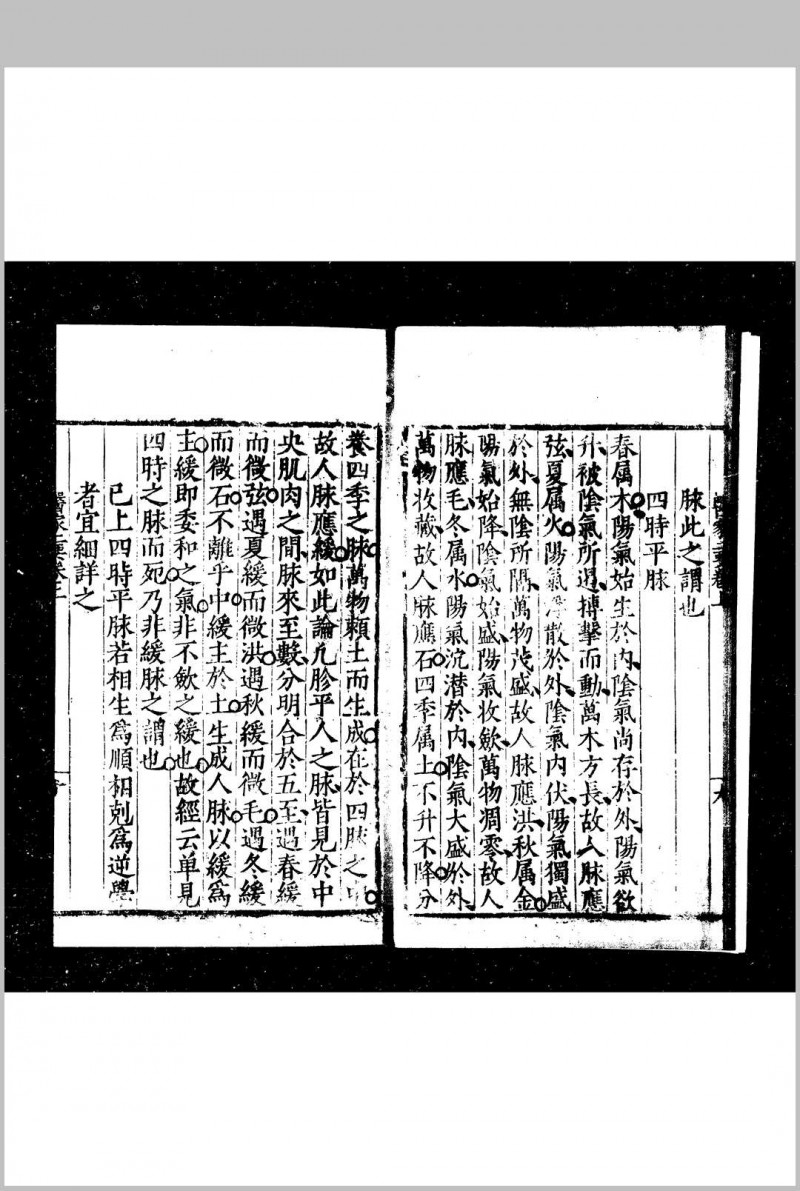 脉此之謂也
四時平脉
春属木陽氣始生於内陰氣尚存於外陽氣欲
升被陰氣所遏搏擊而動萬木方長故人脉應
弦夏属火陽氣浮散於外陰氣内伏陽氣獨盛
於外無陰所隔萬物茂盛故人脉應洪秋属金
陽氣始降陰氣始盛陽氣收歛萬物凋零故人
脉應毛冬属水陽氣沉潜於内陰氣大盛於外
萬物收藏故人脉應石四季属土不升不降分
養四季之脉萬物頼土而生成在於四脉之中
故人脉應緩如此論凢胗平人之脉皆見於中
央肌肉之間脉來至數分明合於五至遇春緩
而微弦遇夏緩而微洪遇秋緩而微毛遇冬緩
而微石不離乎中緩主於土生成人脉以緩爲
主緩即委和之氣非不歛之緩也故經云单見
四時之脉而死乃非緩脉之謂也
已上四時平脉若相生爲順相剋爲逆學
者宜細詳之